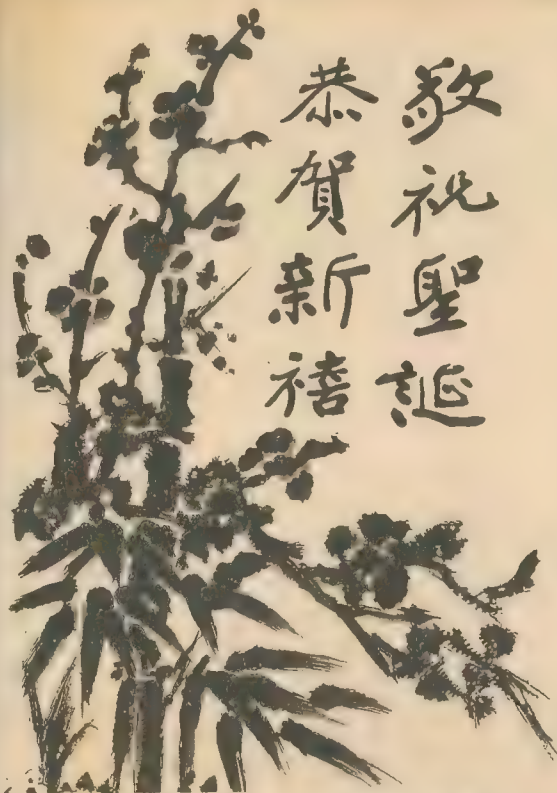 敬祝聖誕
恭賀新禧